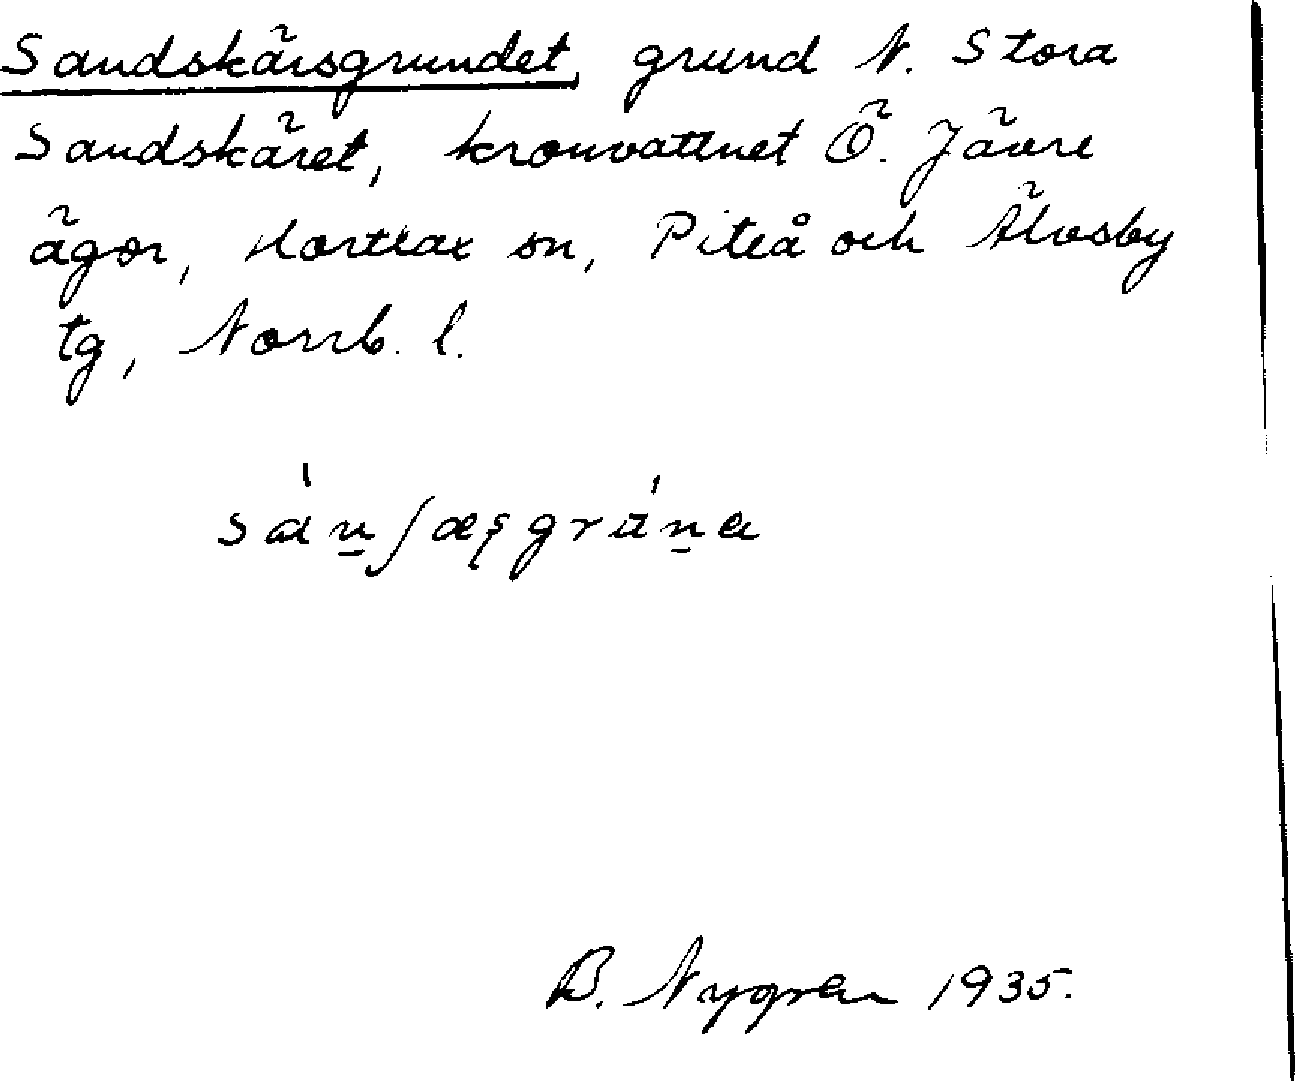 Sandskärsgrundet, grund N. Stora
Sandskäret, kronvattnet Ö. Jävre
ägor, Hortlax sn, Piteå och Älvsby
tg, Norrb. l.
B. Nygren 1935.